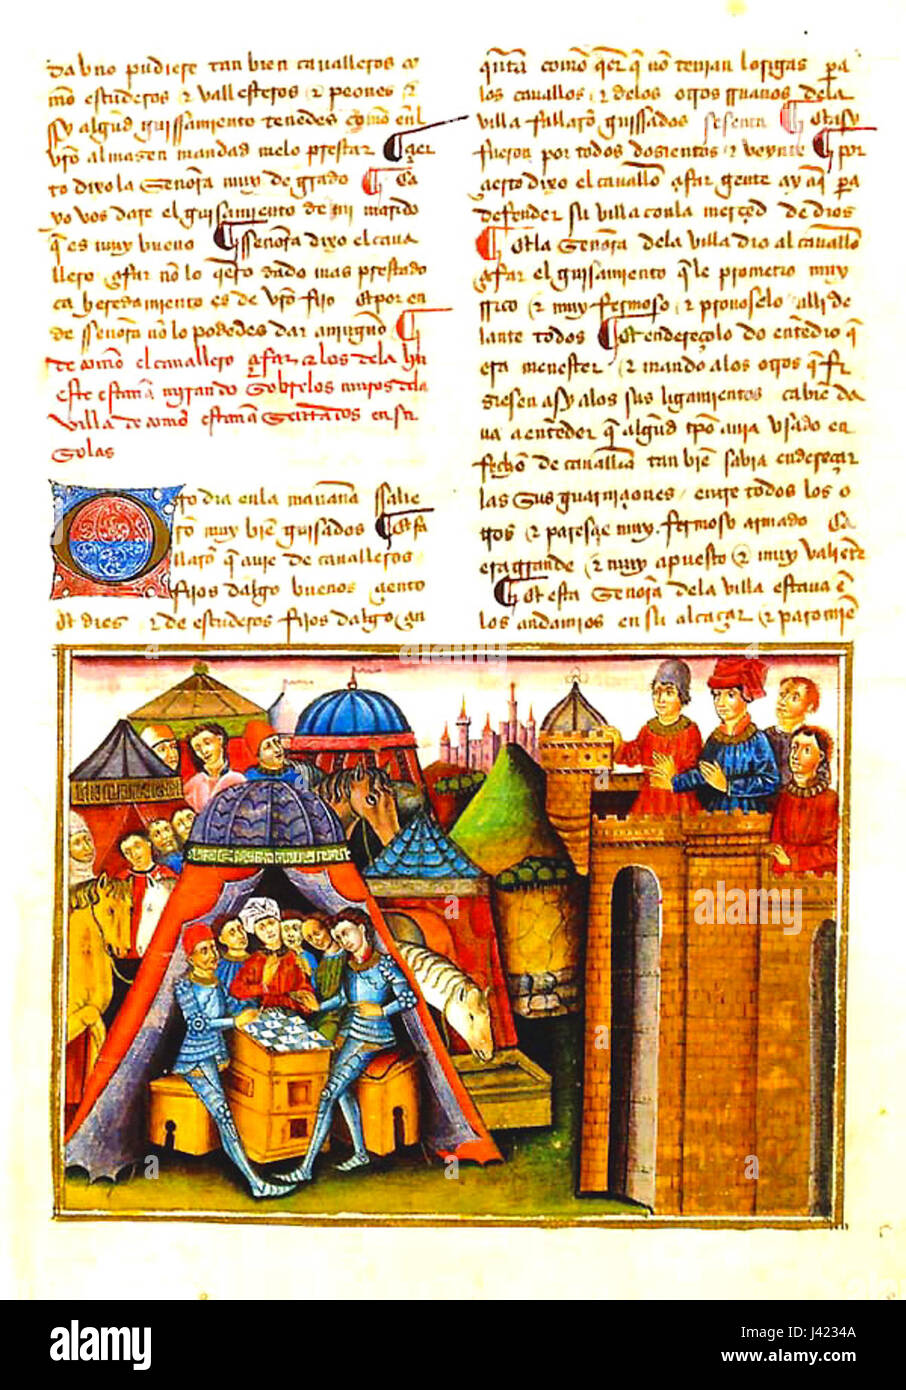 da uno pudiese tan bien cavalleros co
mo escuderos & vallesteros & peones &
ssy algund guissamiento tenedes como enl
vro almasen mandad melo prestar ¶ çer
to dixo la Señora muy de grado ¶ Ca
yo vos dare el guisamiento de mi marido
q es muy bueno ¶ Señora dixo el cava
llero çifar no lo qero dado mas prestado
ca heredamiento es de vro fijo et por en
de señora no lo podedes dar a ninguno ¶
De como el cavallero çifar & los dela hu
este estavan mirando sobre los muros dela
villa de como estavan sentados en su
solas
Otro dia en la mañana salie
ro muy bien guisados ¶ et fa
llaro q avie de cavalleros
fijos dalgo buenos çiento
et dies & de escuderos fijos dalgo çin
quenta como qer q no tenian lorigas pa
los cavallos & delos otros rruanos dela
villa fallaro guissados sesenta ¶ Et assy
fueron por todos dosientos & veynte ¶ por
çierto dixo el cavallo çifar gente ay aqi pa
defender su villa con la merçed de dios
¶ Et la Señora dela villa dio al cavallo
çifar el guissamiento q le prometio muy
rrico & muy fermoso & provoselo alli de
lante todos ¶ Et endereçolo do entedio q
era menester & mando alos otros q fi
siesen asy alos sus ligamientos ca bie da
va a entender q algud tpo avia usado en
fecho de cavallia tan bie sabia endereçar
las sus guarniçones entre todos los o
tros & paresçie muy fermoso armado Ca
era grande & muy apuesto & muy valiente
¶ Et esta Señora dela villa estava e
los andamios en su alcaçar & paro mie
alamy
Image ID: J4234A
www.alamy.com